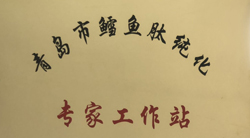 青岛市鳕鱼肽纯化
专家工作站